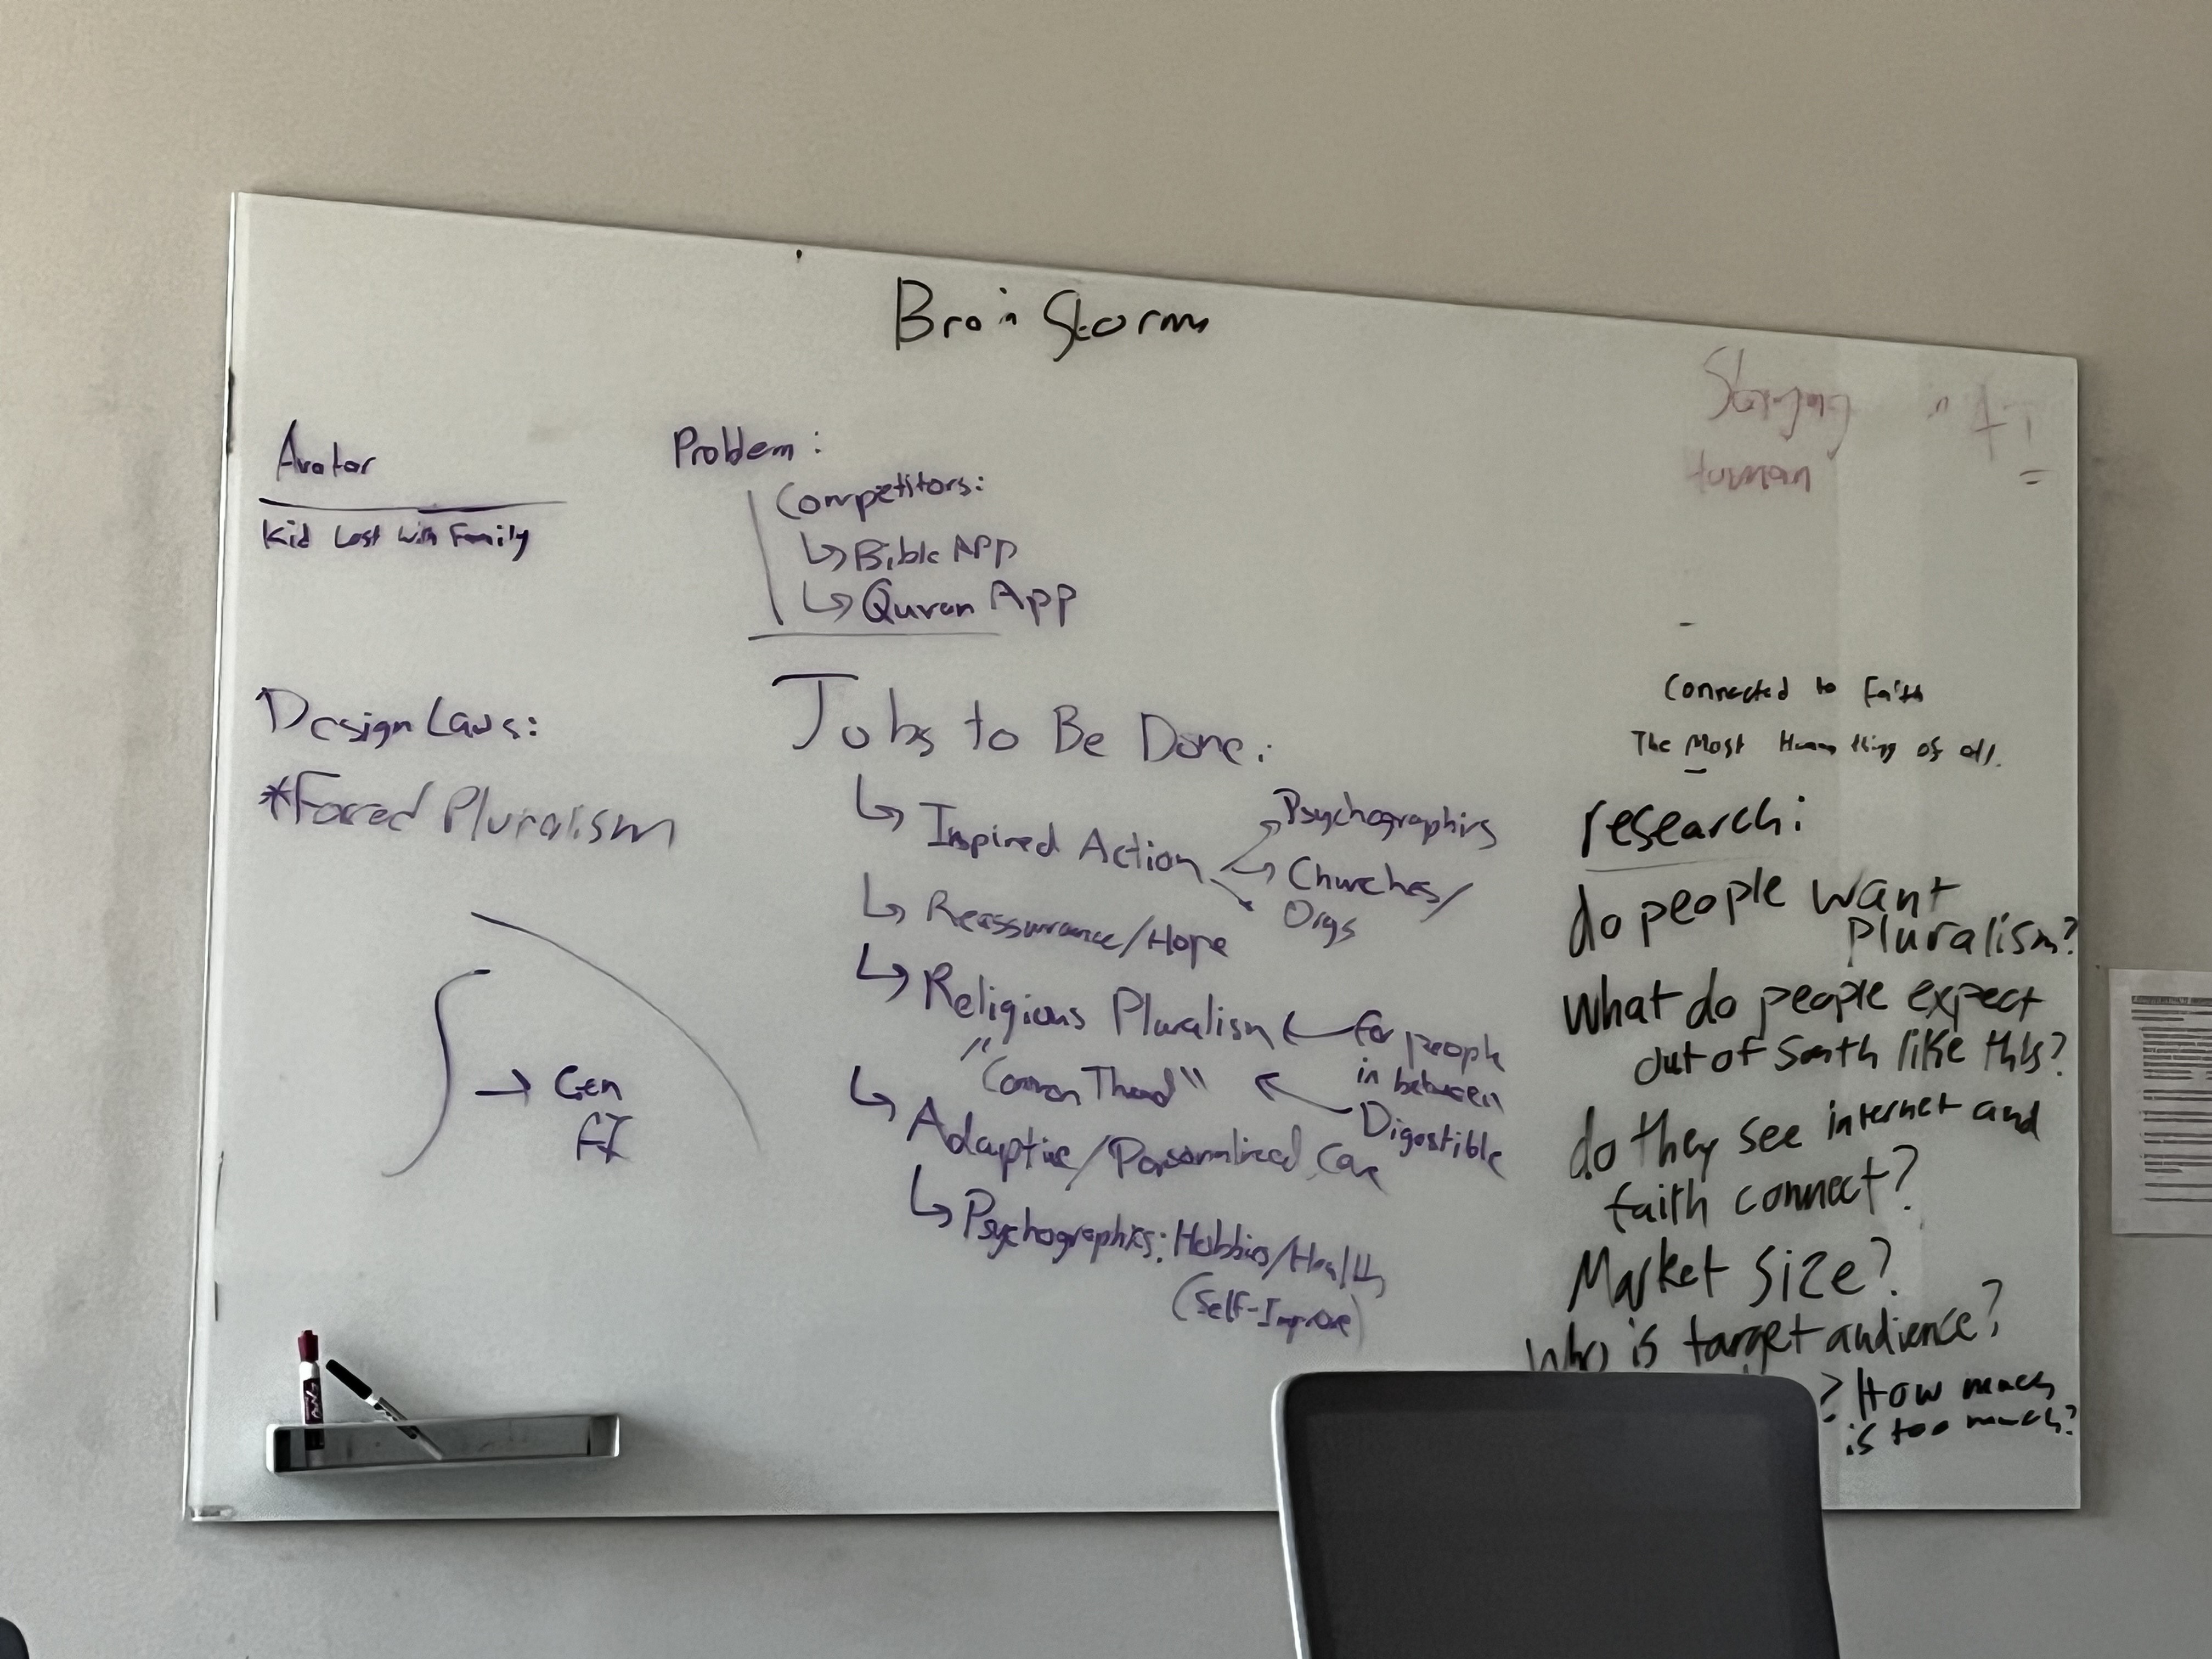 Brain Storm
Avatar
Kid Lost with Family
Problem:
Competitors:
↳ Bible App
↳ Quran App
Design Laws:
*Forced Pluralism
→ Gen
AI
Jobs to Be Done:
↳ Inspired Action
Psychographics
Churches/
Orgs
↳ Reassurance/Hope
↳ Religious Pluralism ← for people
in between
"Common Thread" ← Digestible
↳ Adaptive/Personalized Care
↳ Psychographics: Hobbies/Health
(Self-Improve)
Staying
Human
Connected to Faith
The Most Human thing of all.
research:
do people want
Pluralism?
What do people expect
out of smth like this?
do they see internet and
faith connect?
Market size?
Who is target audience?
? How much
is too much?